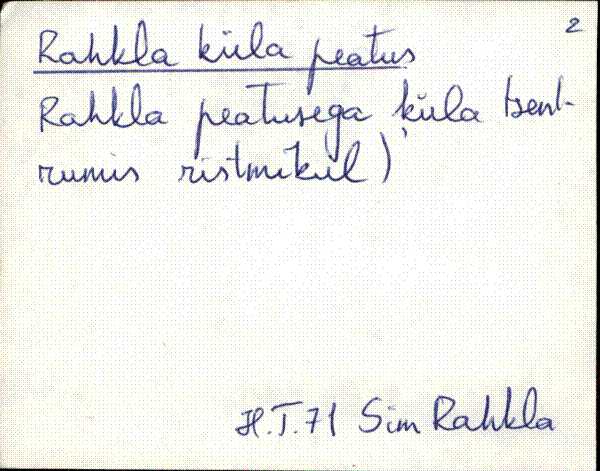 2
Rahkla küla peatus
Rahkla peatusega küla tsent-
rumis ristmikul)
H.T.71 Sim Rahkla